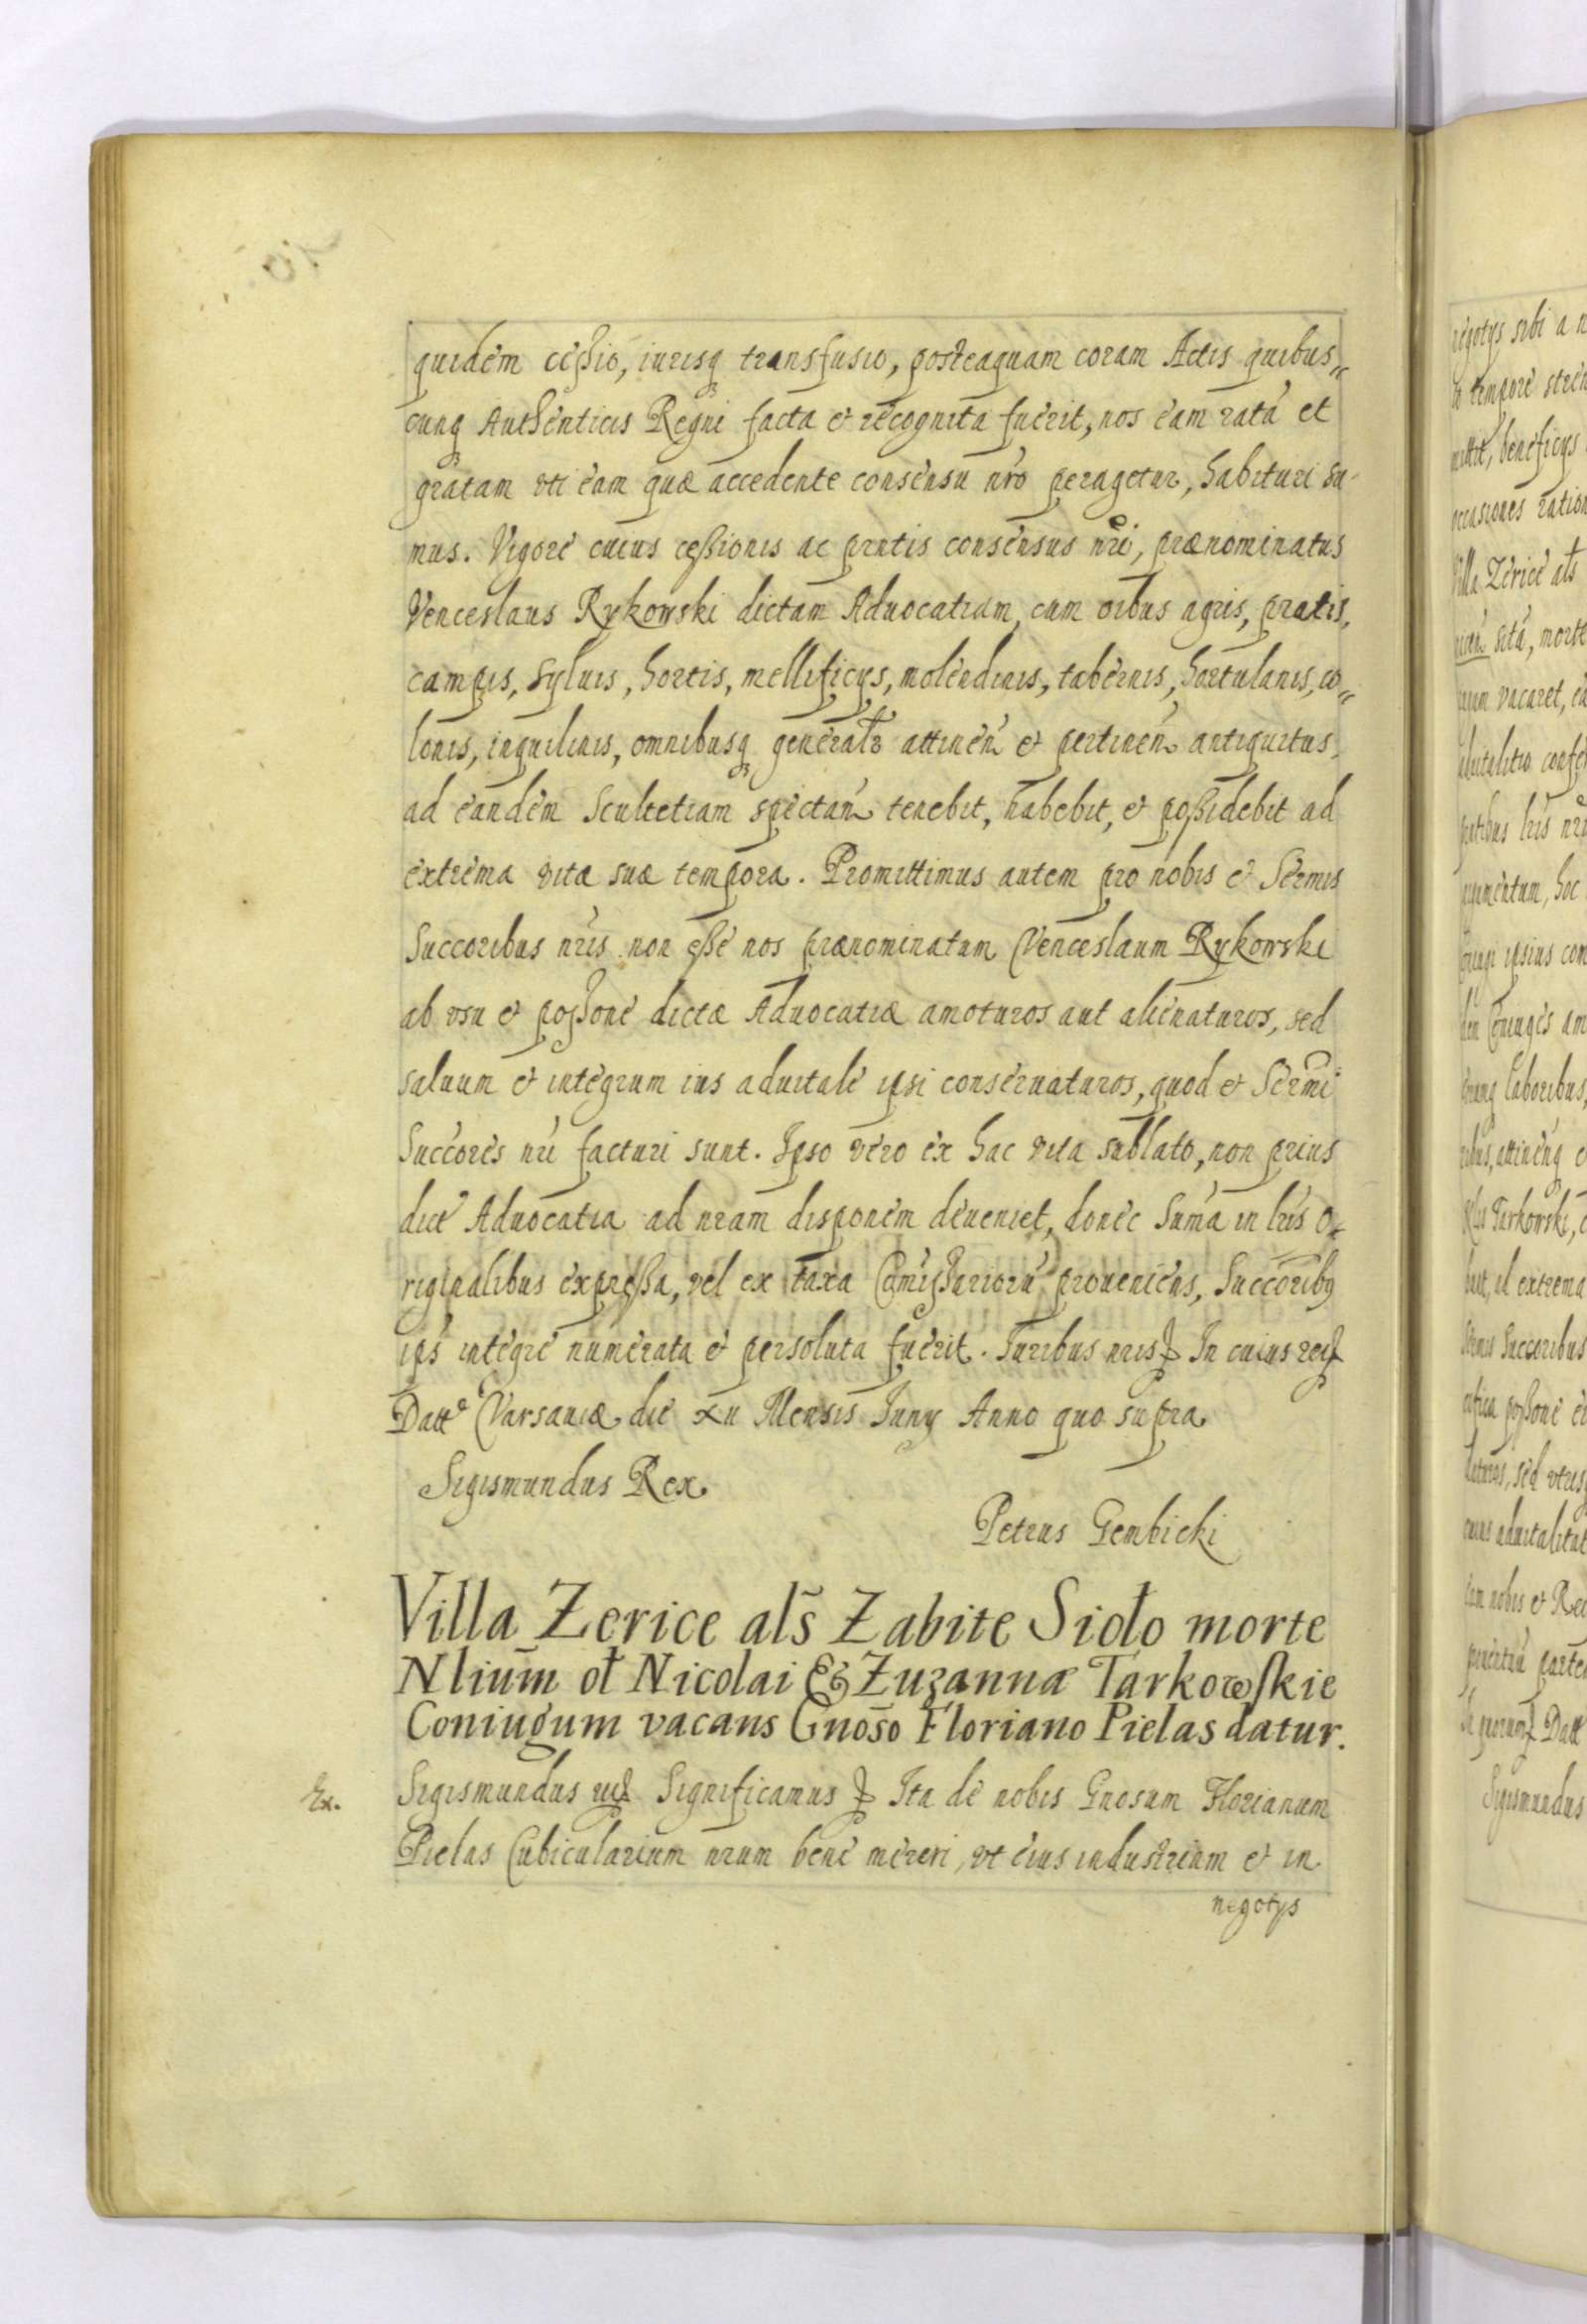 quidem cessio, iurisq transfusio, posteaquam coram Actis quibus„
cunq Authenticis Regni facta et recognita fuerit, nos eam ratã et
gratam vti eam quæ accedente consensu nr̃o peragetur, habituri su-
mus. Vigore cuius cessionis ac pr̃ntis consensus nr̃i, prænominatus
Venceslaus Rykowski dictam Aduocatiam, cum oĩbus agris, pratis,
campis, syluis, hortis, mellificys, molendinis, tabernis, hortulanis, co„
lonis, inquilinis, omnibusq generalr̃ attineñ et pertineñ antiquitus,
ad eandem Scultetiam spectañ tenebit, habebit, et possidebit ad
extrema vitæ suæ tempora. Promittimus autem pro nobis et Serm̃is
Succoribus nr̃is non esse nos prænominatum Venceslaum Rykowski
ab vsu et posson̄e dictæ Aduocatiæ amoturos aut alienaturos, sed
saluum et integrum ius aduitale ipsi conseruaturos, quod et Serm̃i
Succores nr̃i facturi sunt. Ipso vero ex hac vita sublato, non prius
dict Aduocatia ad nr̃am dispon̄em deueniet, donec Sum̃a in lr̃is o-
riginalibus expressa, vel ex taxa Com̃issarioru proueniens, Succoribus
ips integre numerata et persoluta fuerit. Iuribus nr̃is ꝑ In cuius rei ꝑ
Datt Varsauiæ die xii Mensis Iuny Anno quo supra
Sigismundus Rex
Petrus Gembicki
Villa Zerice als̃ Zabite Sioło morte
Nlium̃ oł Nicolai & Zuzannæ Tarkowskie
Coniugum vacans Gnos̃o Floriano Pielas datur.
Ex. Sigismundus Significamus ꝑ Ita de nobis Gnosum Florianum
Pielas Cubicularium nrum bene mereri, vt eius industriam et in
negotys